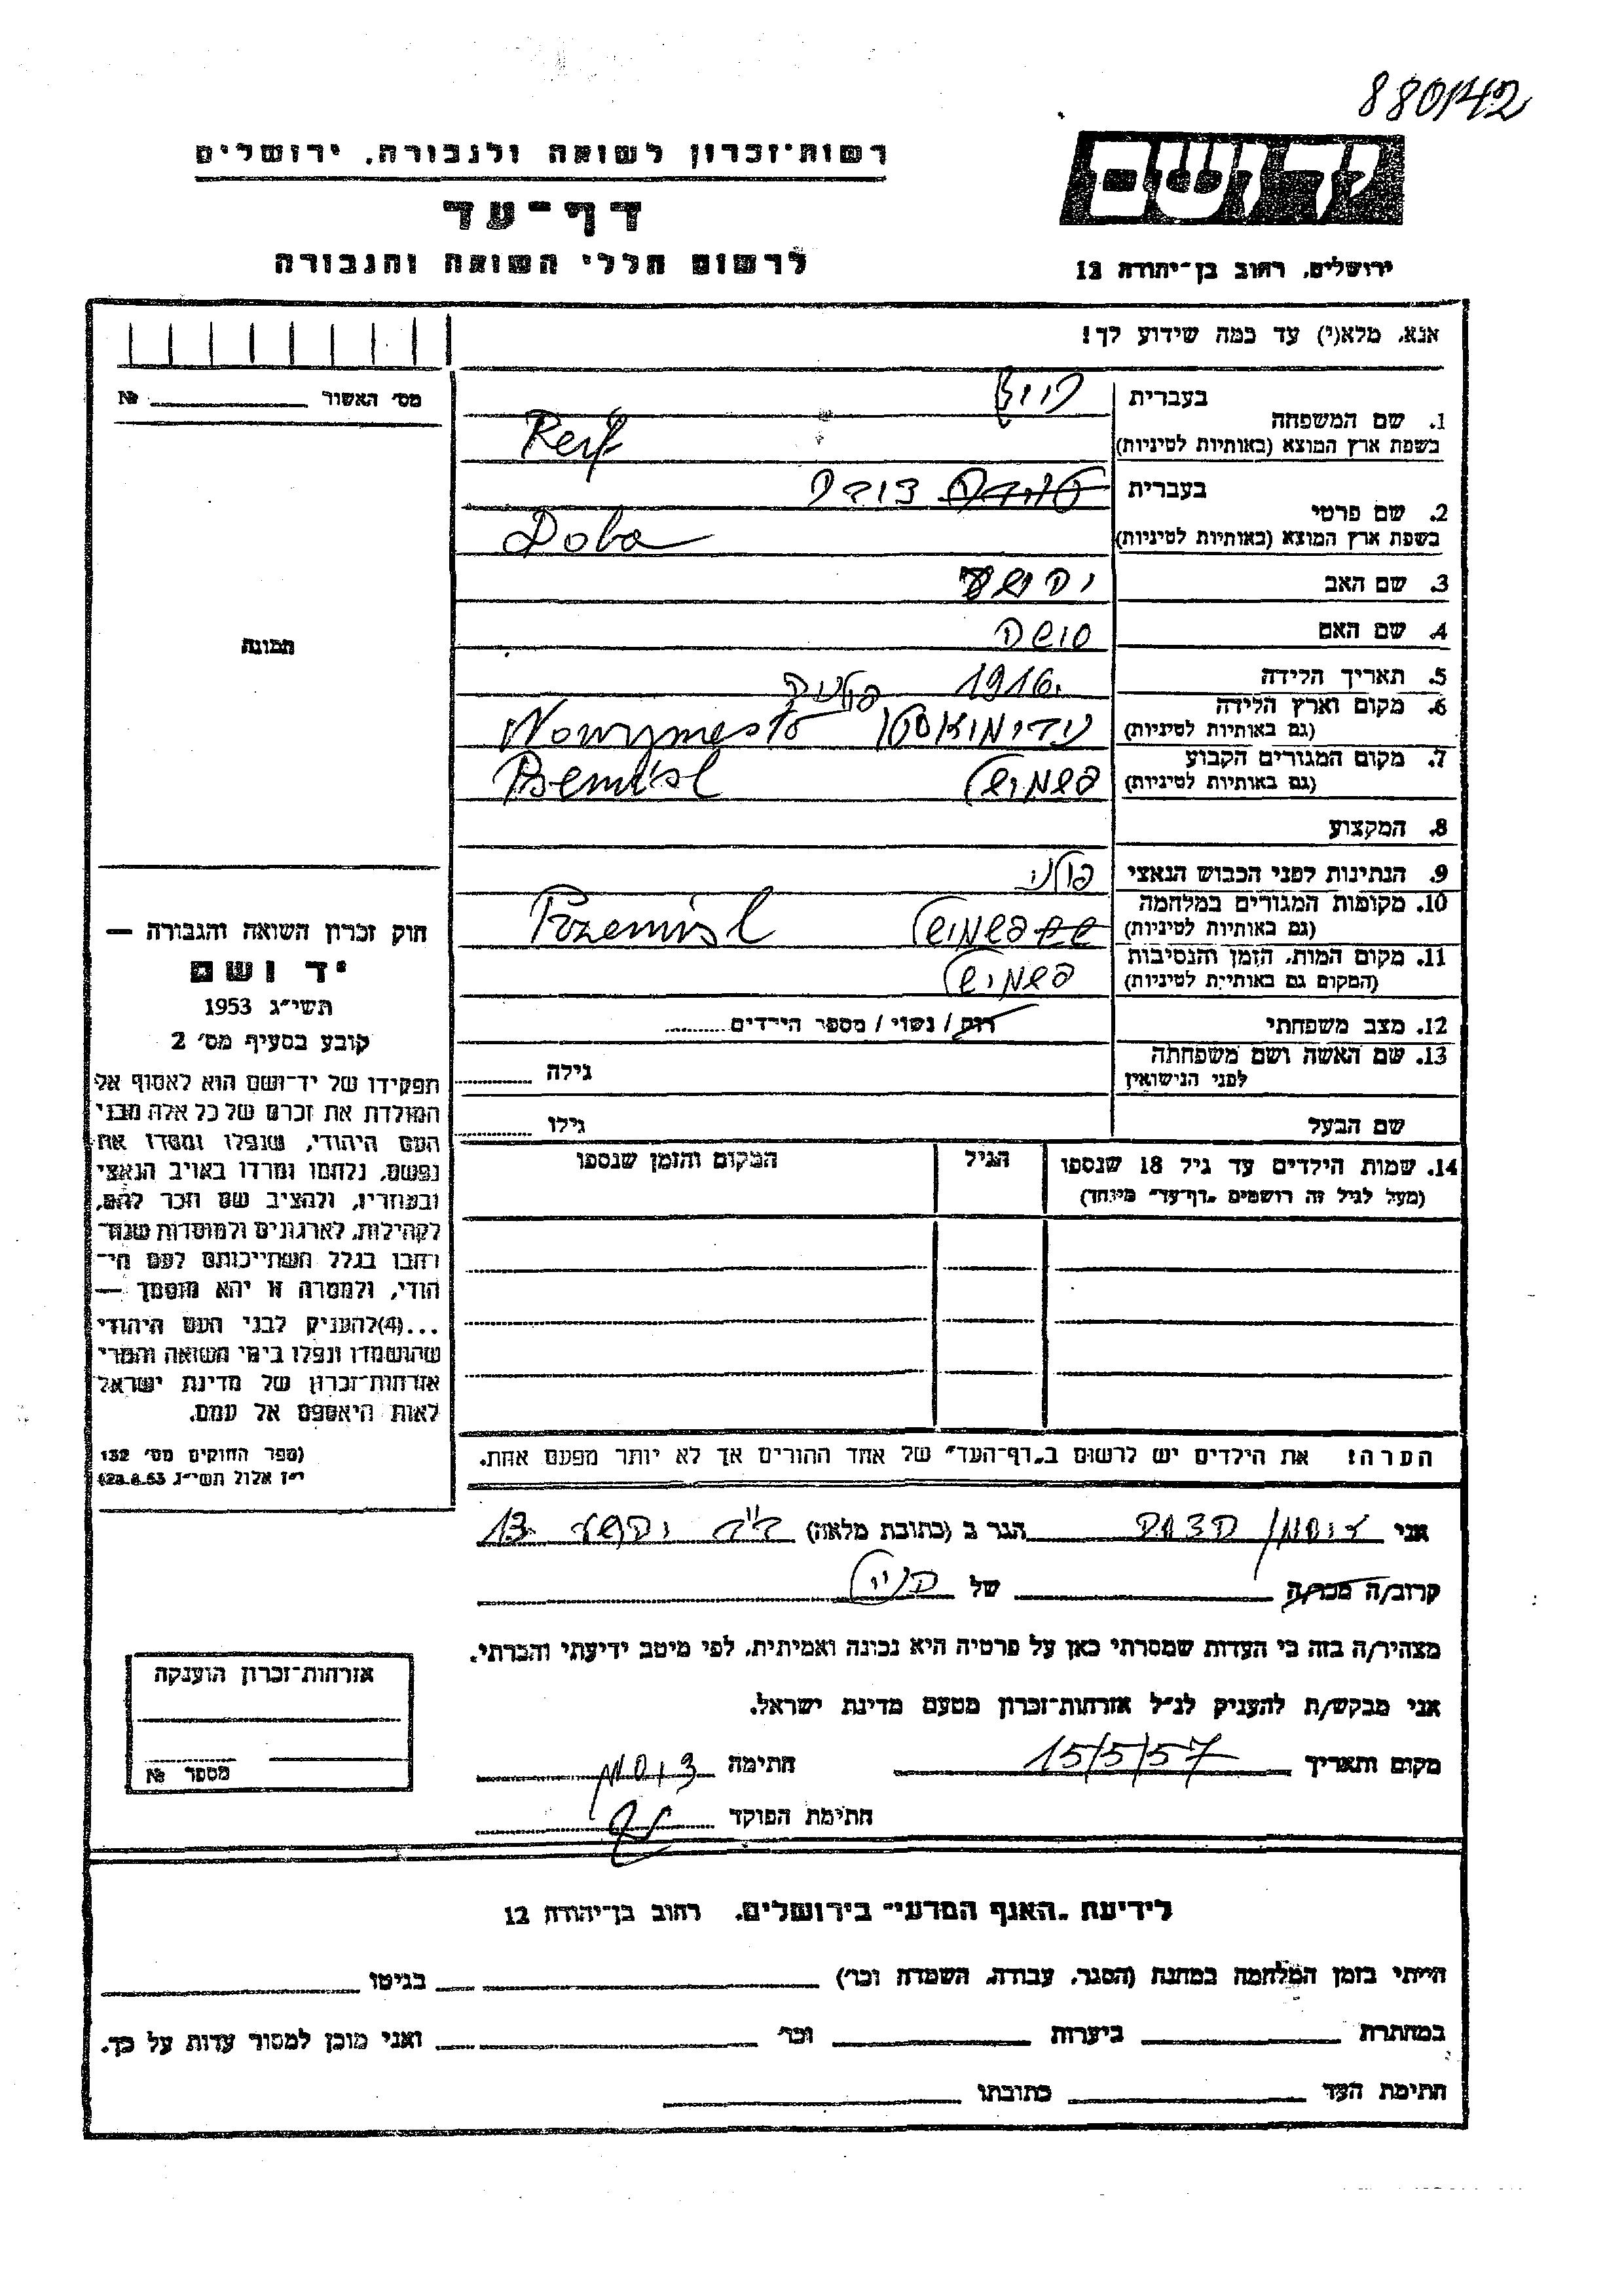 880142
רשות־זכרון לשואה ולגבורה, ירושלים
דף־עד
לרשום חללי השואה והגבורה
יד ושם
ירושלים, רחוב בן־יהודה 12
אנא, מלא(י) עד כמה שידוע לך!
מס׳ האשור № 
תמונה
1. שם המשפחה
בעברית
בשפת ארץ המוצא (באותיות לטיניות)
2. שם פרטי
בעברית דובה
בשפת ארץ המוצא (באותיות לטיניות) Doba
3. שם האב
4. שם האם
5. תאריך הלידה 1916
6. מקום וארץ הלידה
(גם באותיות לטיניות) Nowymesto
7. מקום המגורים הקבוע
(גם באותיות לטיניות) פשמישל
8. המקצוע
9. הנתינות לפני הכבוש הנאצי פולני
10. מקומות המגורים במלחמה
(גם באותיות לטיניות) פשמישל Przemisl
11. מקום המות, הזמן והנסיבות
(המקום גם באותיות לטיניות) פשמישל
12. מצב משפחתי רוק / נשוי / מספר הילדים
13. שם האשה ושם משפחתה
לפני הנישואין גילה
שם הבעל גילו
14. שמות הילדים עד גיל 18 שנספו
(מעל לגיל זה רושמים „דף־עד״ מיוחד)
הגיל
המקום והזמן שנספו
הערה: את הילדים יש לרשום ב„דף־העד״ של אחד ההורים אך לא יותר מפעם אחת.
חוק זכרון השואה והגבורה —
יד ושם
תשי״ג 1953
קובע בסעיף מס׳ 2
תפקידו של יד־ושם הוא לאסוף אל
המולדת את זכרם של כל אלה מבני
העם היהודי, שנפלו ומסרו את
נפשם, נלחמו ומרדו באויב הנאצי
ובעוזריו, ולהציב שם וזכר להם,
לקהילות, לארגונים ולמוסדות שנח־
רבו בגלל השתייכותם לעם הי־
הודי, ולמטרה זו יהא מוסמך —
...(4) להעניק לבני העם היהודי
שהושמדו ונפלו בימי השואה והמרי
אזרחות־זכרון של מדינת ישראל
לאות היאספם אל עמם.
(ספר החוקים מס׳ 132
י״ז אלול תשי״ג 28.8.53)
אני
הגר ב (כתובת מלאה) 13
קרוב/ה מכר/ה של
מצהיר/ה בזה כי העדות שמסרתי כאן על פרטיה היא נכונה ואמיתית, לפי מיטב ידיעתי והכרתי.
אני מבקש/ת להעניק לנ״ל אזרחות־זכרון מטעם מדינת ישראל.
מקום ותאריך 15/5/57 חתימה
חתימת הפוקד
אזרחות־זכרון הוענקה
מספר №
לידיעת „האגף המדעי״ בירושלים, רחוב בן־יהודה 12
הייתי בזמן המלחמה במחנה (הסגר, עבודה, השמדה וכו׳) בגיטו
במחתרת ביערות וכו׳ ואני מוכן למסור עדות על כך.
חתימת העד כתובתו